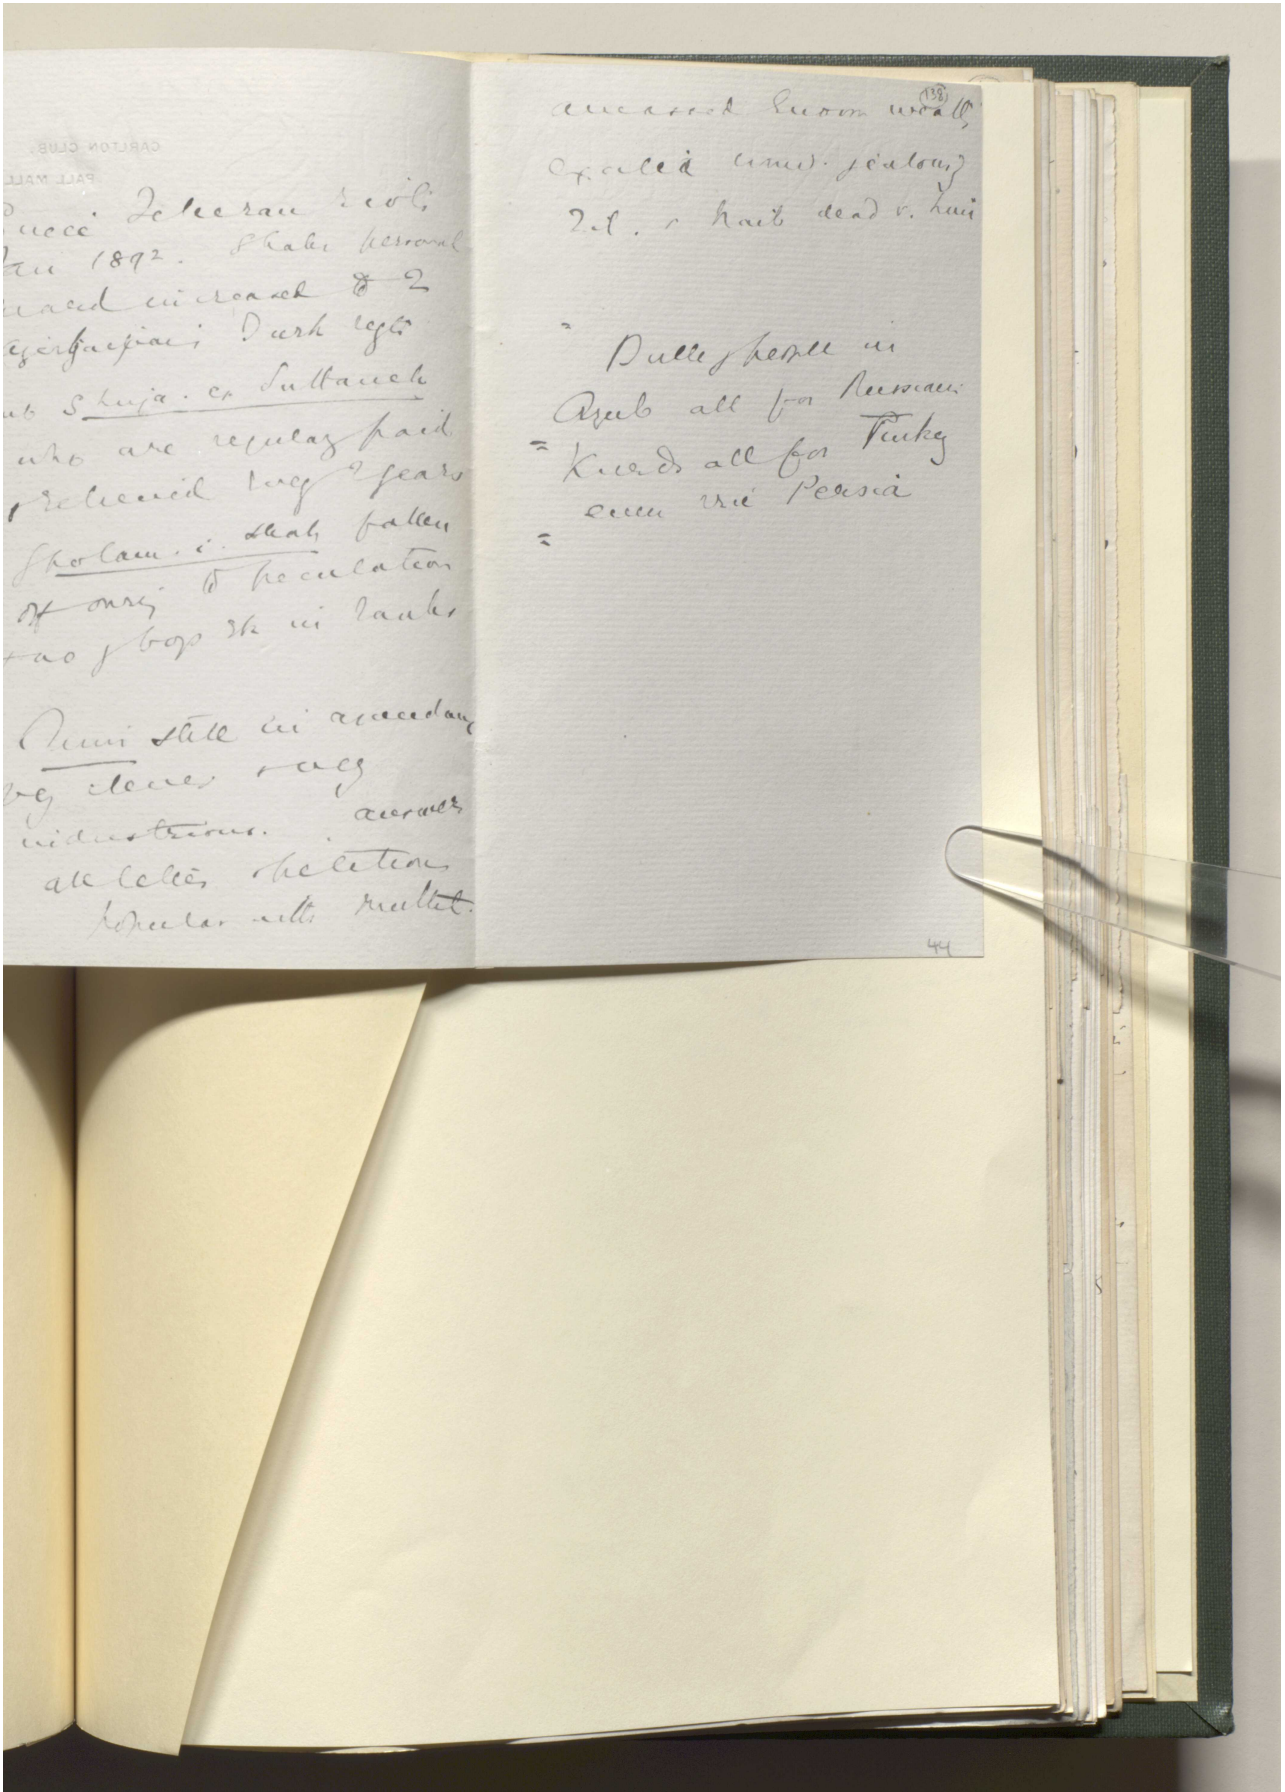 CARLTON CLUB,
PALL MALL
Since Teheran riots
Jan 1892. Shahs personal
guard increased to 2
Azerbaijani Turk regts
Shuja. es Sultaneh
who are regularly paid
& relieved every 2 years
Gholam. i. shah fallen
off owing to peculation
& boys &c in ranks
Amin still in ascendancy
very clever & very
industrious. answers
all letters petitions
popular with
138
amassed enorm wealth,
excited jealousy
Z.S. & Naib dead v. him
Bulk of people in
Azerb all for Russian:
= Kurds all for Turkey
even in Persia
=
44